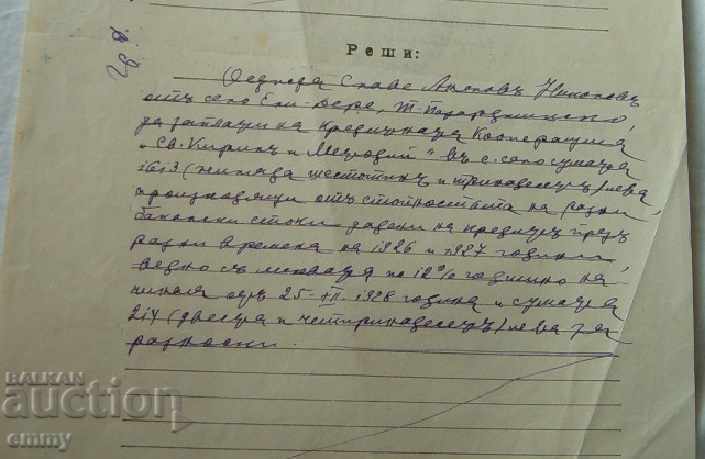 Реши:
Осѫжда Славе Ангеловъ Николовъ
отъ село Ели-Дере, Т. Пазарджишко,
да заплати на Кредитната Кооперация
„Св. Кирилъ и Методий“ въ с. село сумата
1613 (хиляда шестотинъ и тринадесеть) лева
произходящи отъ стойностьта на разни
бакалски стоки дадени на кредитъ презъ
разни времена на 1926 и 1927 години,
ведно съ лихвата по 12% годишно на-
чиная отъ 25-XII-1928 година и сумата
214 (двеста и четиринадесеть) лева за
разноски.
BALKAN
auction
emmy